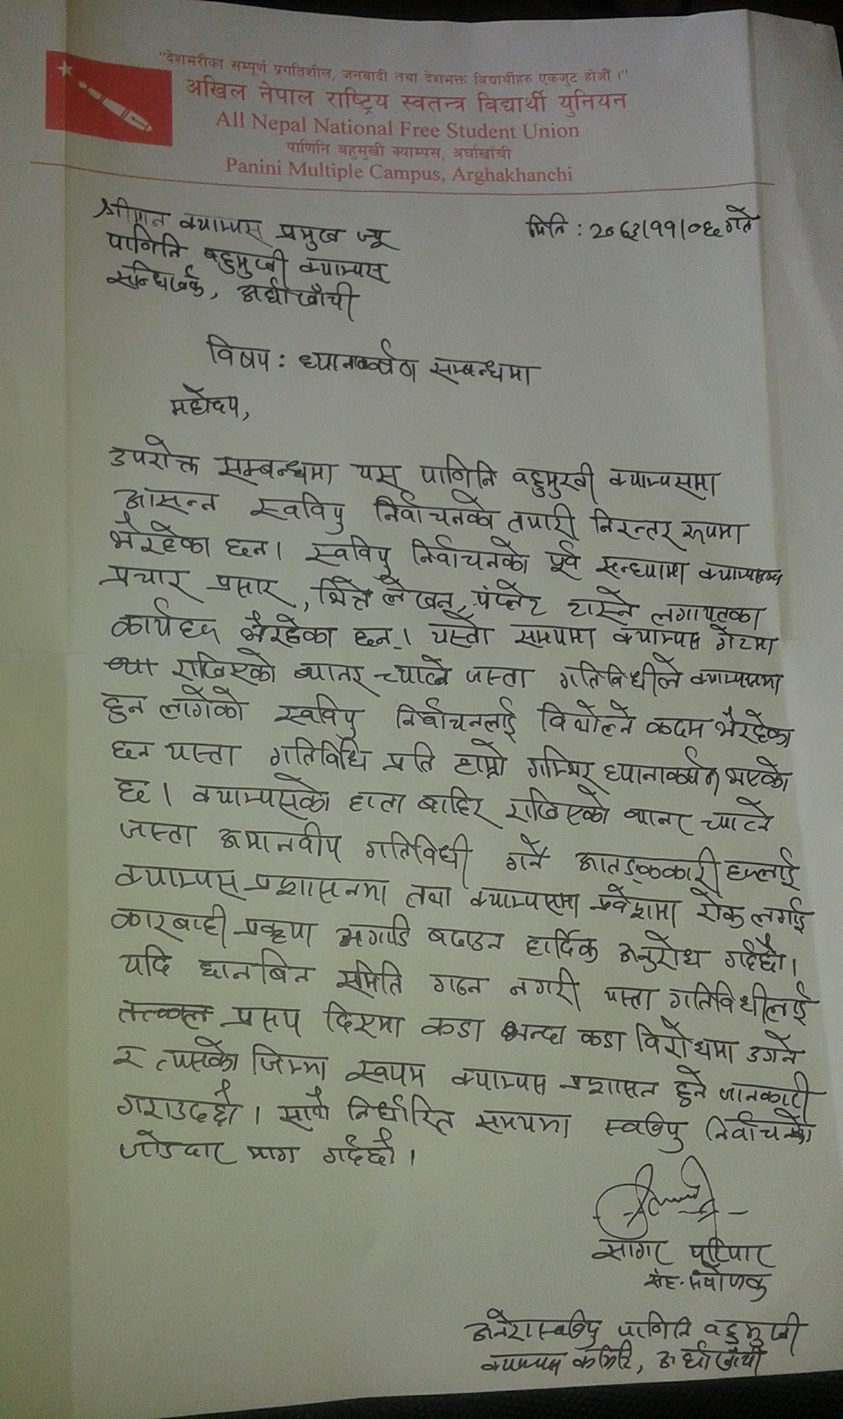 "देशभरीका सम्पूर्ण प्रगतिशील, जनवादी तथा देशभक्त विद्यार्थीहरु एकजुट होऔं ।"
अखिल नेपाल राष्ट्रिय स्वतन्त्र विद्यार्थी युनियन
All Nepal National Free Student Union
पाणिनि बहुमुखी क्याम्पस, अर्घाखाँची
Panini Multiple Campus, Arghakhanchi
श्रीमान क्याम्पस प्रमुख ज्यू
मिति : २०६३।११।०६ गते
पाणिनि बहुमुखी क्याम्पस
सन्धिखर्क, अर्घाखाँची
विषय : ध्यानाकर्षण सम्बन्धमा
महोदय,
उपरोक्त सम्बन्धमा यस पाणिनि बहुमुखी क्याम्पसमा
आसन्न स्ववियु निर्वाचनको तयारी निरन्तर रुपमा
भैरहेका छन। स्ववियु निर्वाचनको पूर्व सन्ध्यामा
प्रचार प्रसार, भित्ते लेखन, पंप्लेट टास्ने लगायतका
कार्यहरु भैरहेका छन्। यस्तो समयमा क्याम्पस गेटमा
राखिएको ब्यानर च्यात्ने जस्ता गतिविधीले क्याम्पसमा
हुन लागेको स्ववियु निर्वाचनलाई विथोल्ने कदम भैरहेका
छन यस्ता गतिविधि प्रति हाम्रो गम्भिर ध्यानाकर्षण भएको
छ। क्याम्पसको हाता बाहिर राखिएको ब्यानर च्यात्ने
जस्ता अमानवीय गतिविधी गर्ने आतङ्ककारी हरुलाई
क्याम्पस प्रशासनमा तथा क्याम्पसमा प्रवेशमा रोक लगाई
कारबाही प्रकृया अगाडि बढाउन हार्दिक अनुरोध गर्दछौं।
यदि छानबिन समिति गठन नगरी यस्ता गतिविधीलाई
प्रसय दिएमा कडा भन्दा कडा विरोधमा उत्रने
र त्यसको जिम्मा स्वयम क्याम्पस प्रशासन हुने जानकारी
गराउदछौ। साथै निर्धारित समयमा स्ववियु निर्वाचनको
जोडदार माग गर्दछौं।
सागर परियार
सह-संयोजक
अनेरास्ववियु पाणिनि बहुमुखी
क्याम्पस कमिटि, अर्घाखाँची